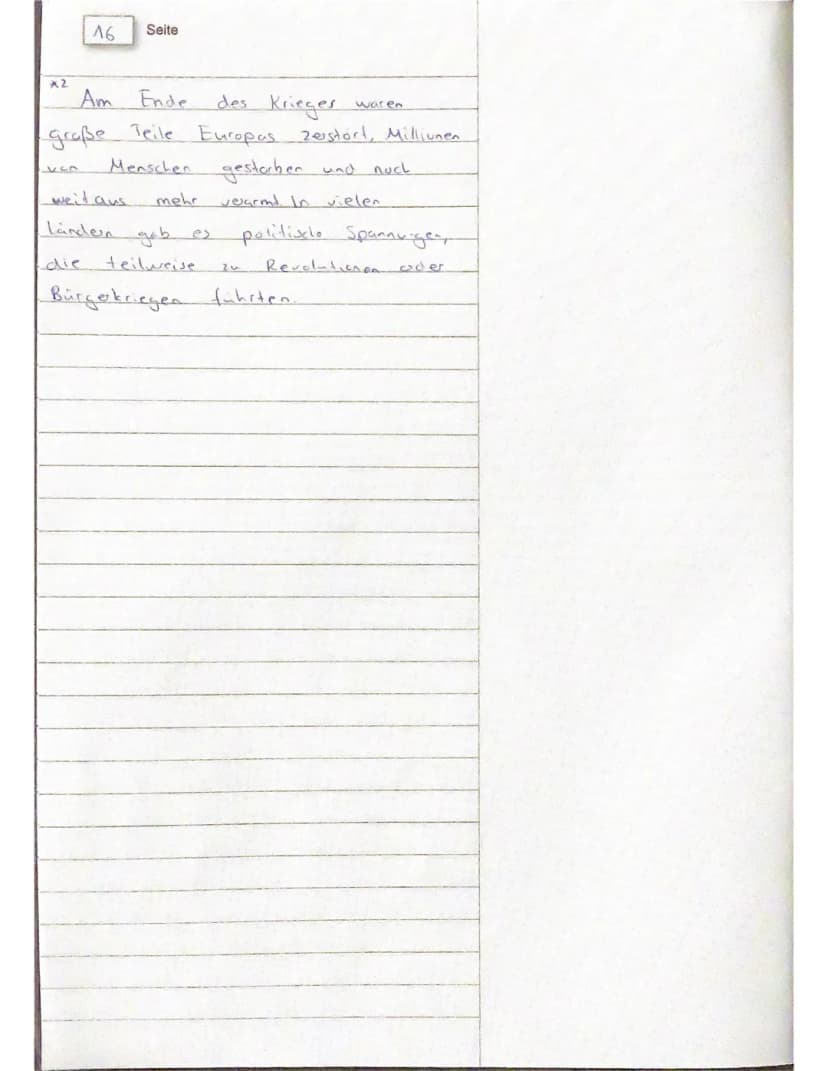 16 Seite
*2 Am Ende des Krieges waren
große Teile Europas zerstört, Millionen
von Menschen gestorben und noch
weitaus mehr verarmt. In vielen
Ländern gab es politische Spannungen,
die teilweise zu Revolutionen oder
Bürgerkriegen führten.